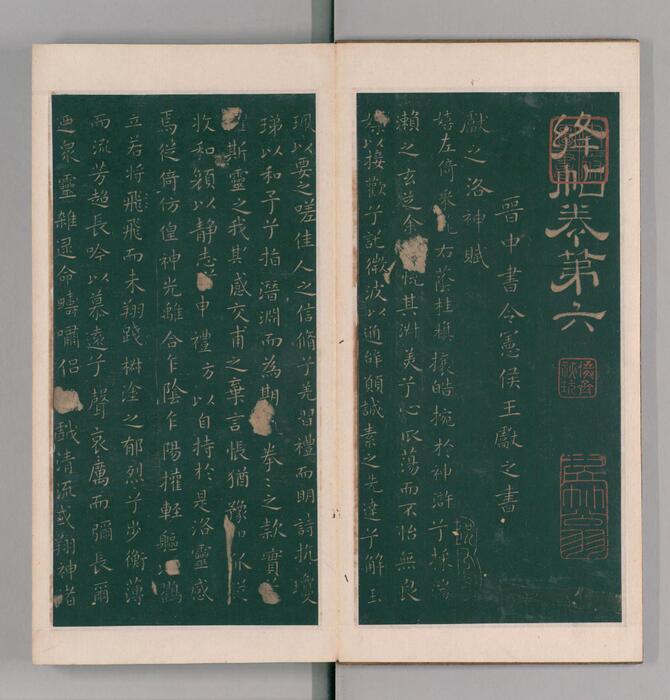 絳帖卷第六
晉中書令憲侯王獻之書
獻之洛神賦
嬉左倚采旄右蔭桂旗攘皓捥於神滸兮採湍
瀨之玄芝余悅其淑美兮心振蕩而不怡無良
媒以接歡兮託微波以通辭願誠素之先達兮解玉
珮以要之嗟佳人之信脩兮羌習禮而明詩抗瓊
珶以和予兮指潛淵而為期拳之款實
斯靈之我其感交甫之棄言悵猶豫而狐疑
收和顏以靜志兮申禮方以自持於是洛靈感
焉徙倚仿偟神光離合乍陰乍陽擢輕軀鶴
立若將飛飛而未翔踐椒塗之郁烈兮步衡薄
而流芳超長吟以慕遠兮聲哀厲而彌長爾
迺衆靈雜遝命疇嘯侶戲清流或翔神渚